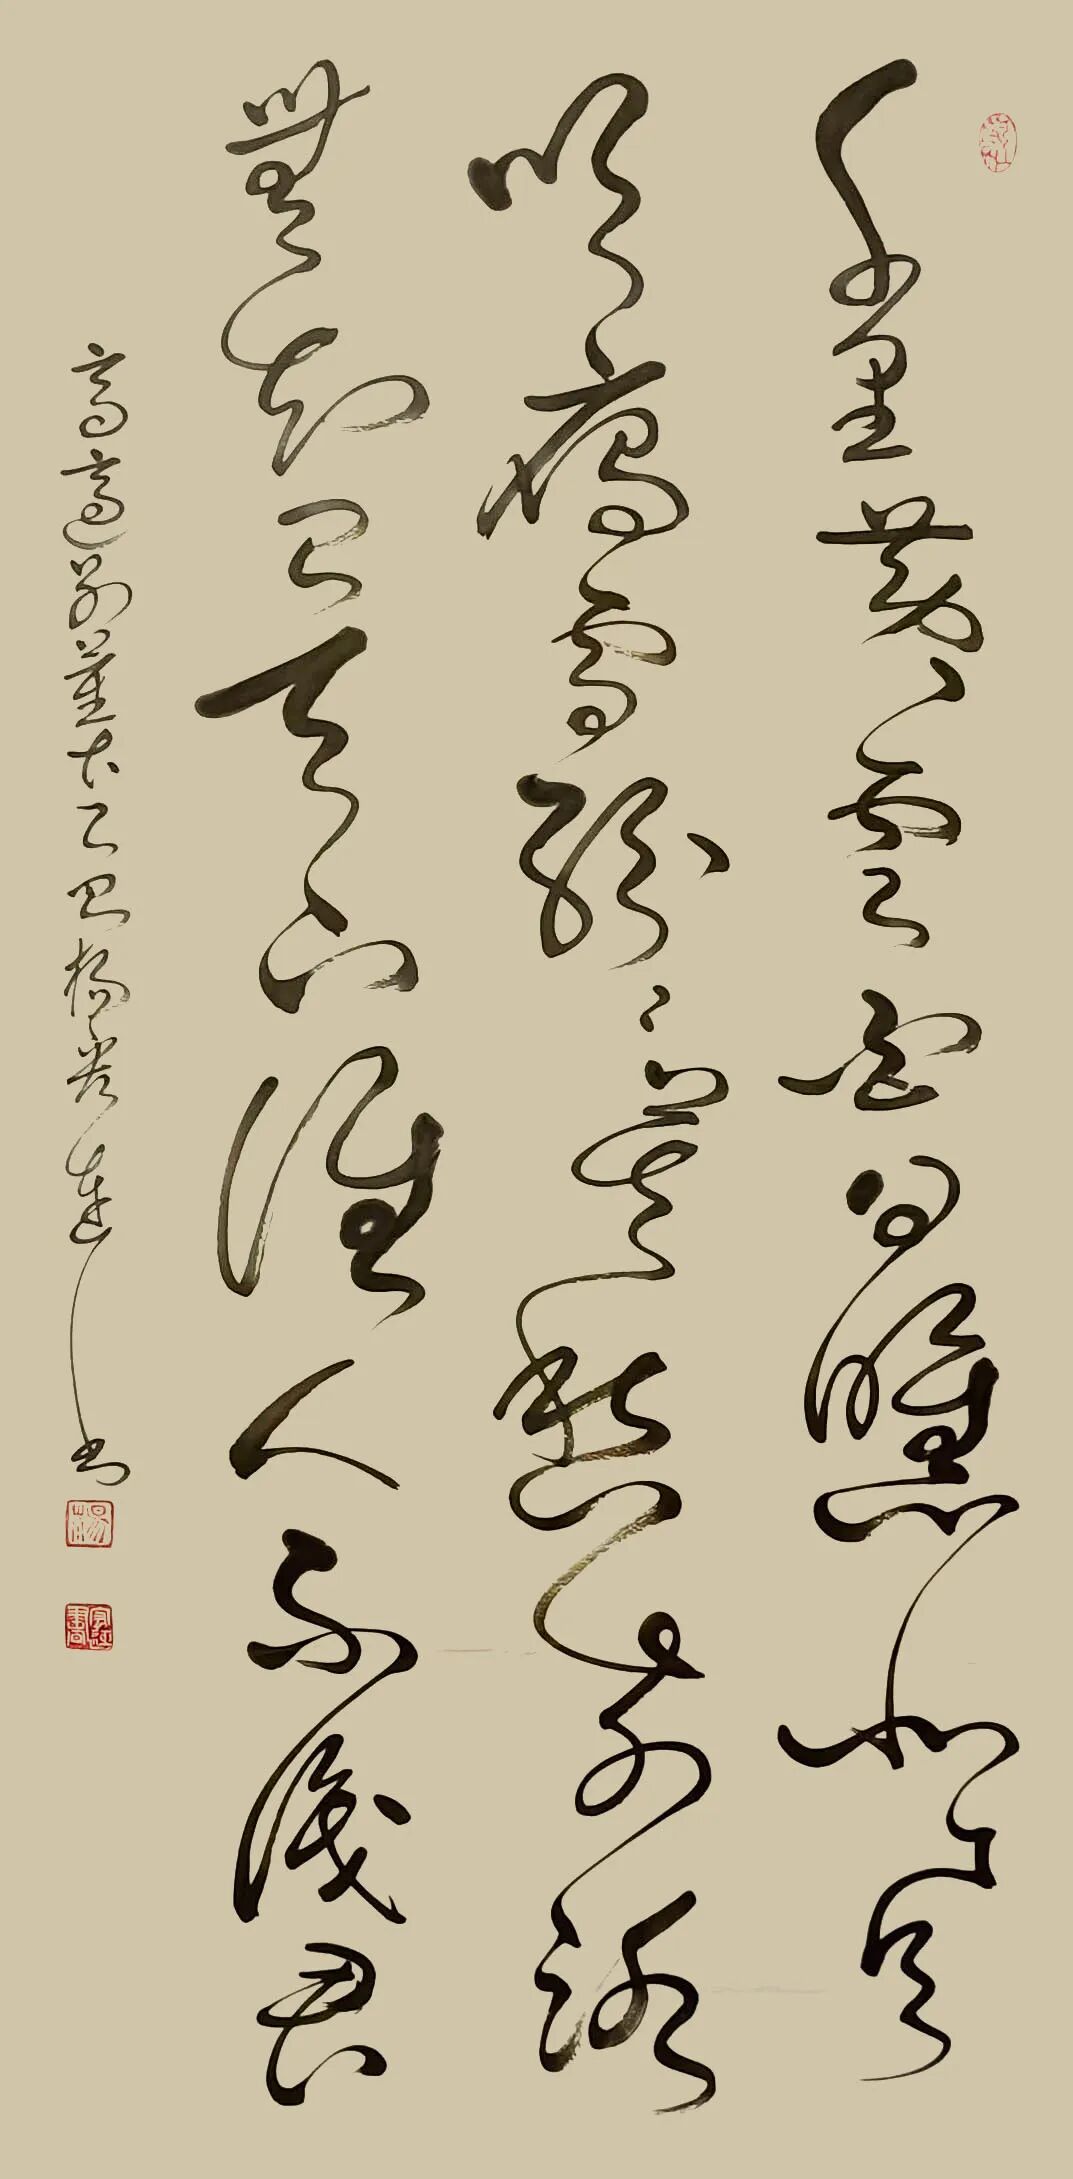 千里黃雲白日曛北風
吹雁雪紛〻莫愁前路
無知己天下誰人不識君
高適別董大乙巳楊書